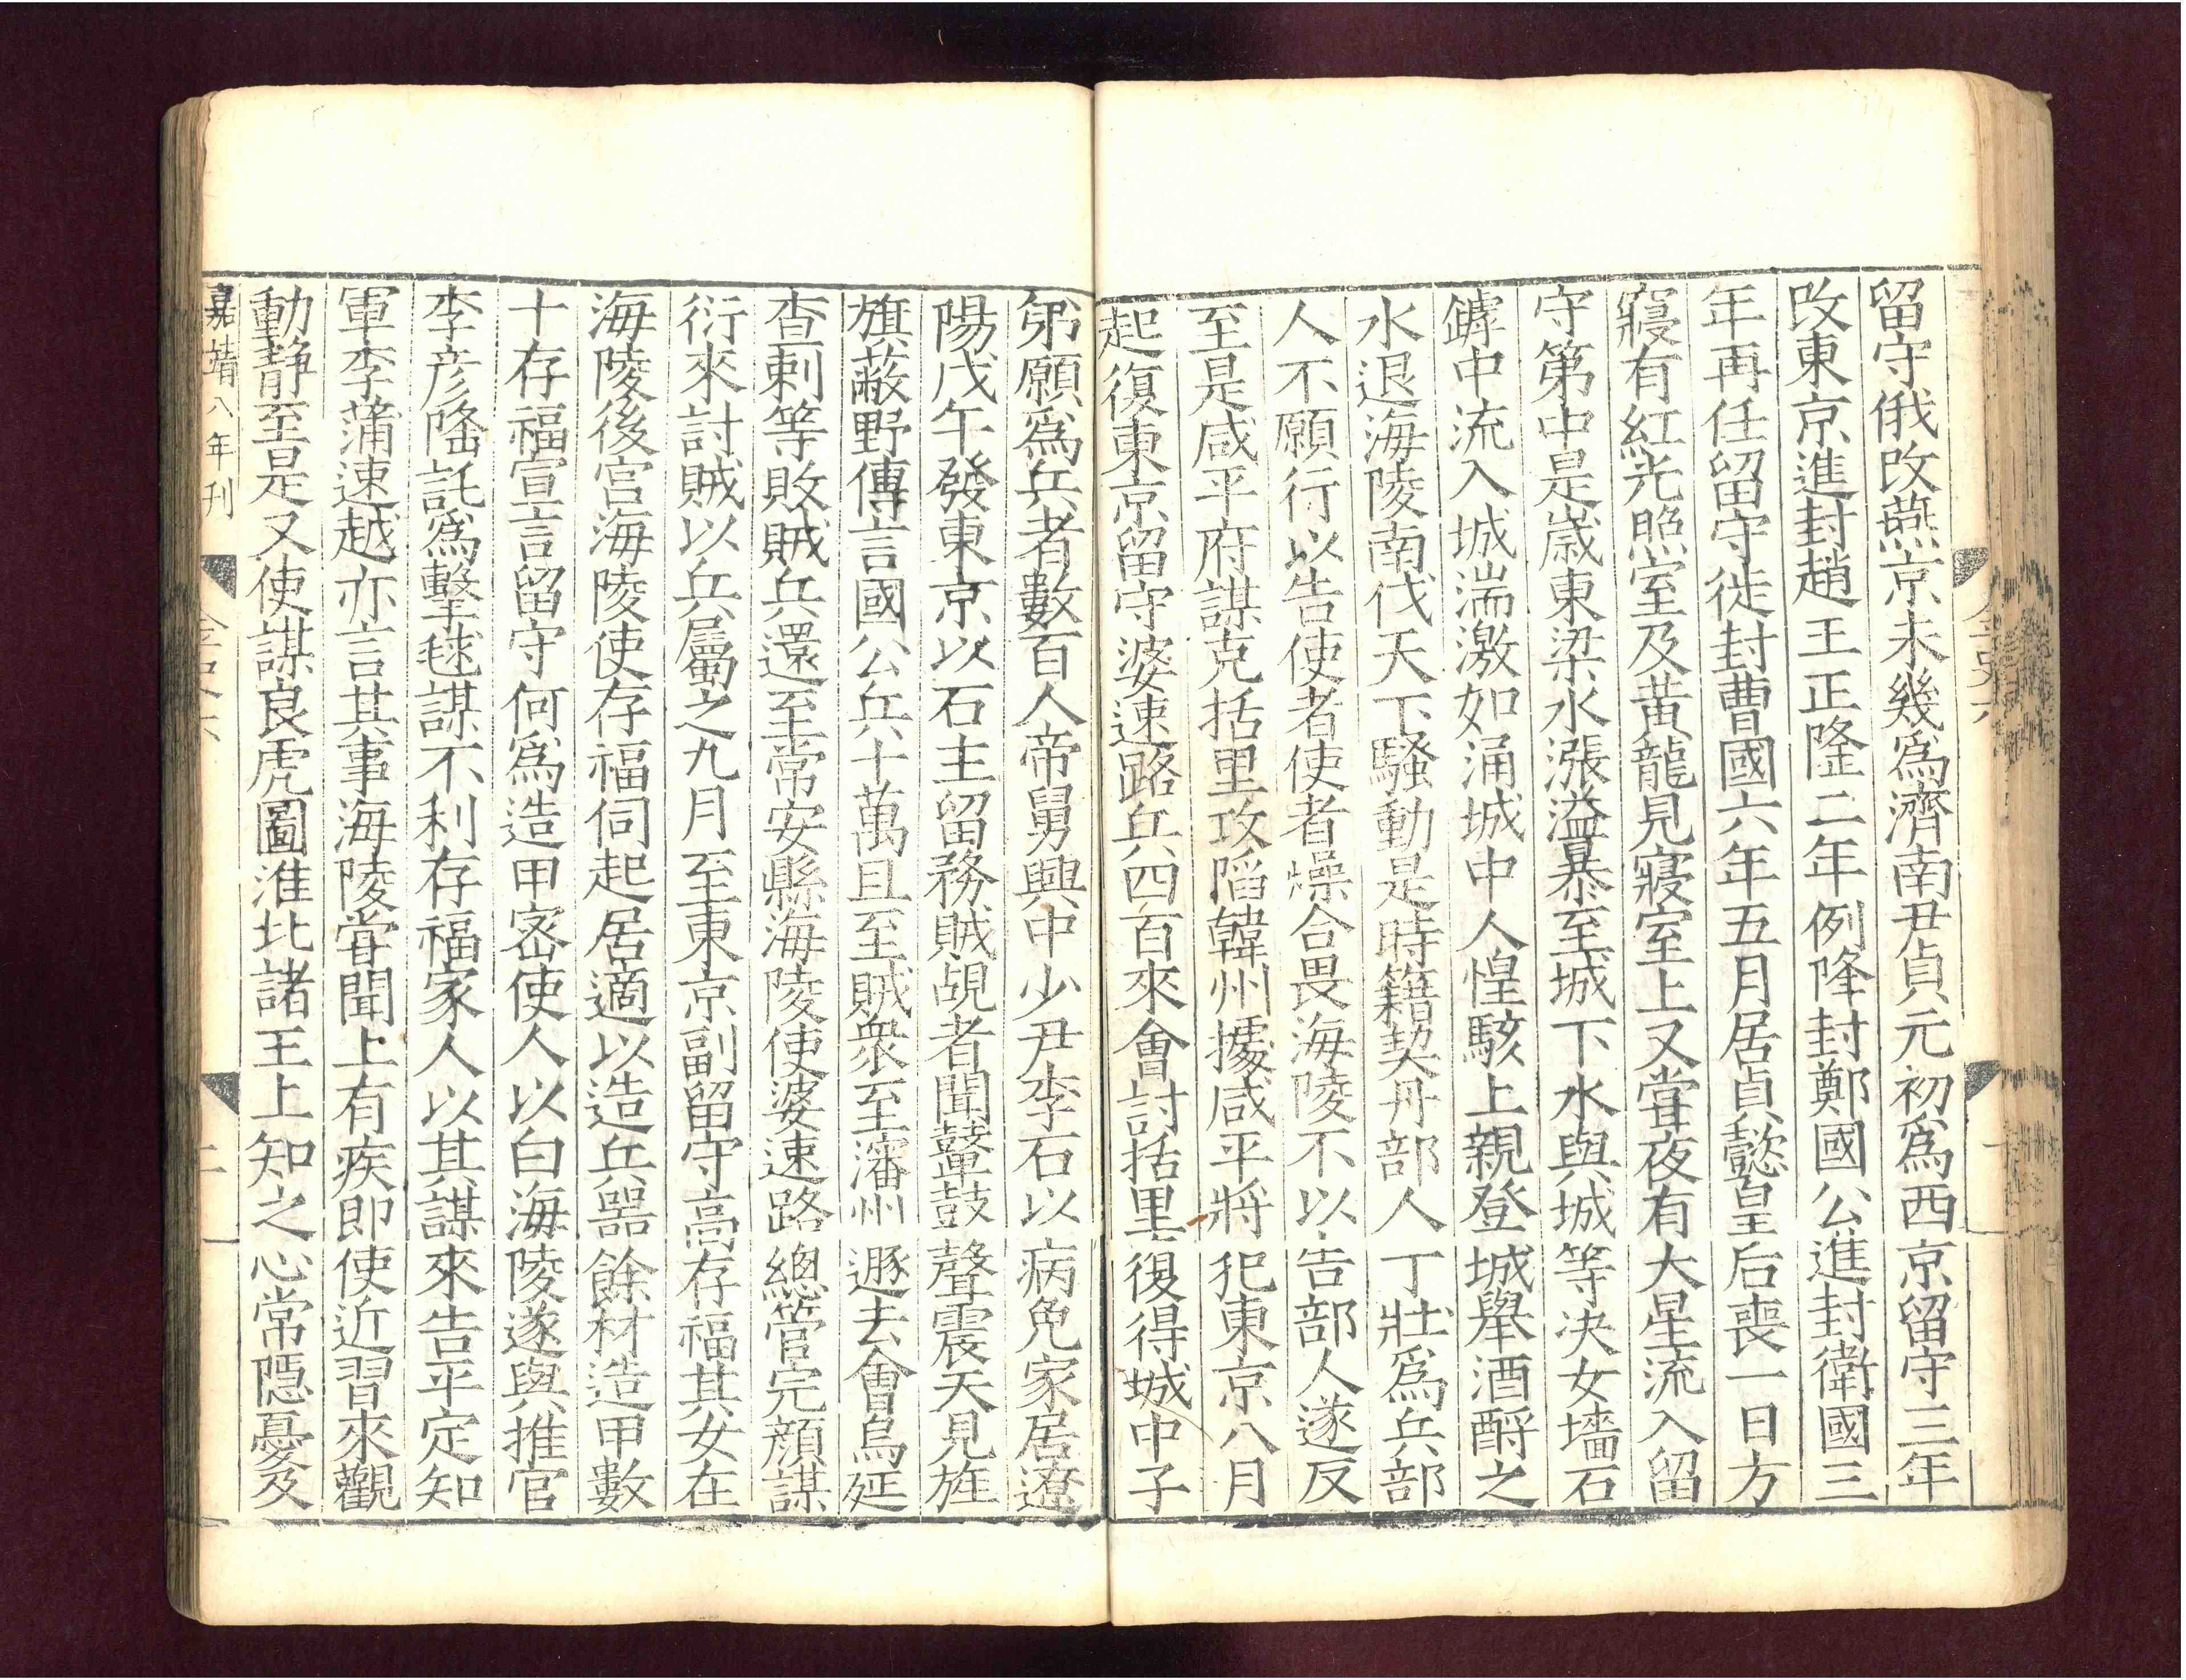 留守俄改燕京未幾爲濟南尹貞元初爲西京留守三年
改東京進封趙王正隆二年例降封鄭國公進封衛國三
年再任留守徙封曹國六年五月居貞懿皇后喪一日方
寢有紅光照室及黃龍見寢室上又嘗夜有大星流入留
守第中是歲東梁水漲溢暴至城下水與城等决女墻石
罅中流入城湍激如涌城中人惶駭上親登城舉酒酹之
水退海陵南伐天下騷動是時籍契丹部人丁壯爲兵部
人不願行以告使者使者燥合畏海陵不以告部人遂反
至是咸平府謀克括里攻䧟韓州據咸平將犯東京八月
起復東京留守婆速路兵四百來會討括里復得城中子
弟願爲兵者數百人帝舅興中少尹李石以病免家居遼
陽戊午發東京以石主留務賊覘者聞鼙鼓聲震天見旌
旗蔽野傳言國公兵十萬且至賊衆至瀋州遯去會烏延
查剌等敗賊兵還至常安縣海陵使婆速路總管完顔謀
衍來討賊以兵屬之九月至東京副留守高存福其女在
海陵後宫海陵使存福伺起居適以造兵噐餘材造甲數
十存福宣言留守何爲造甲密使人以白海陵遂與推官
李彦隆託爲擊毬謀不利存福家人以其謀來告平定知
軍李蒲速越亦言其事海陵嘗聞上有疾即使近習來觀
動静至是又使謀良虎圖淮北諸王上知之心常隱憂及
嘉靖八年刊
金史六
二